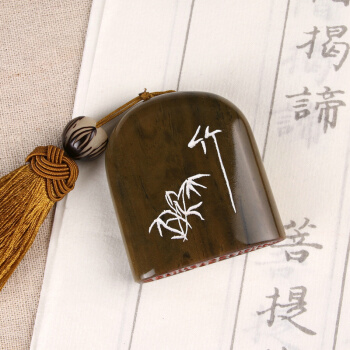 竹
揭
諦
菩
提